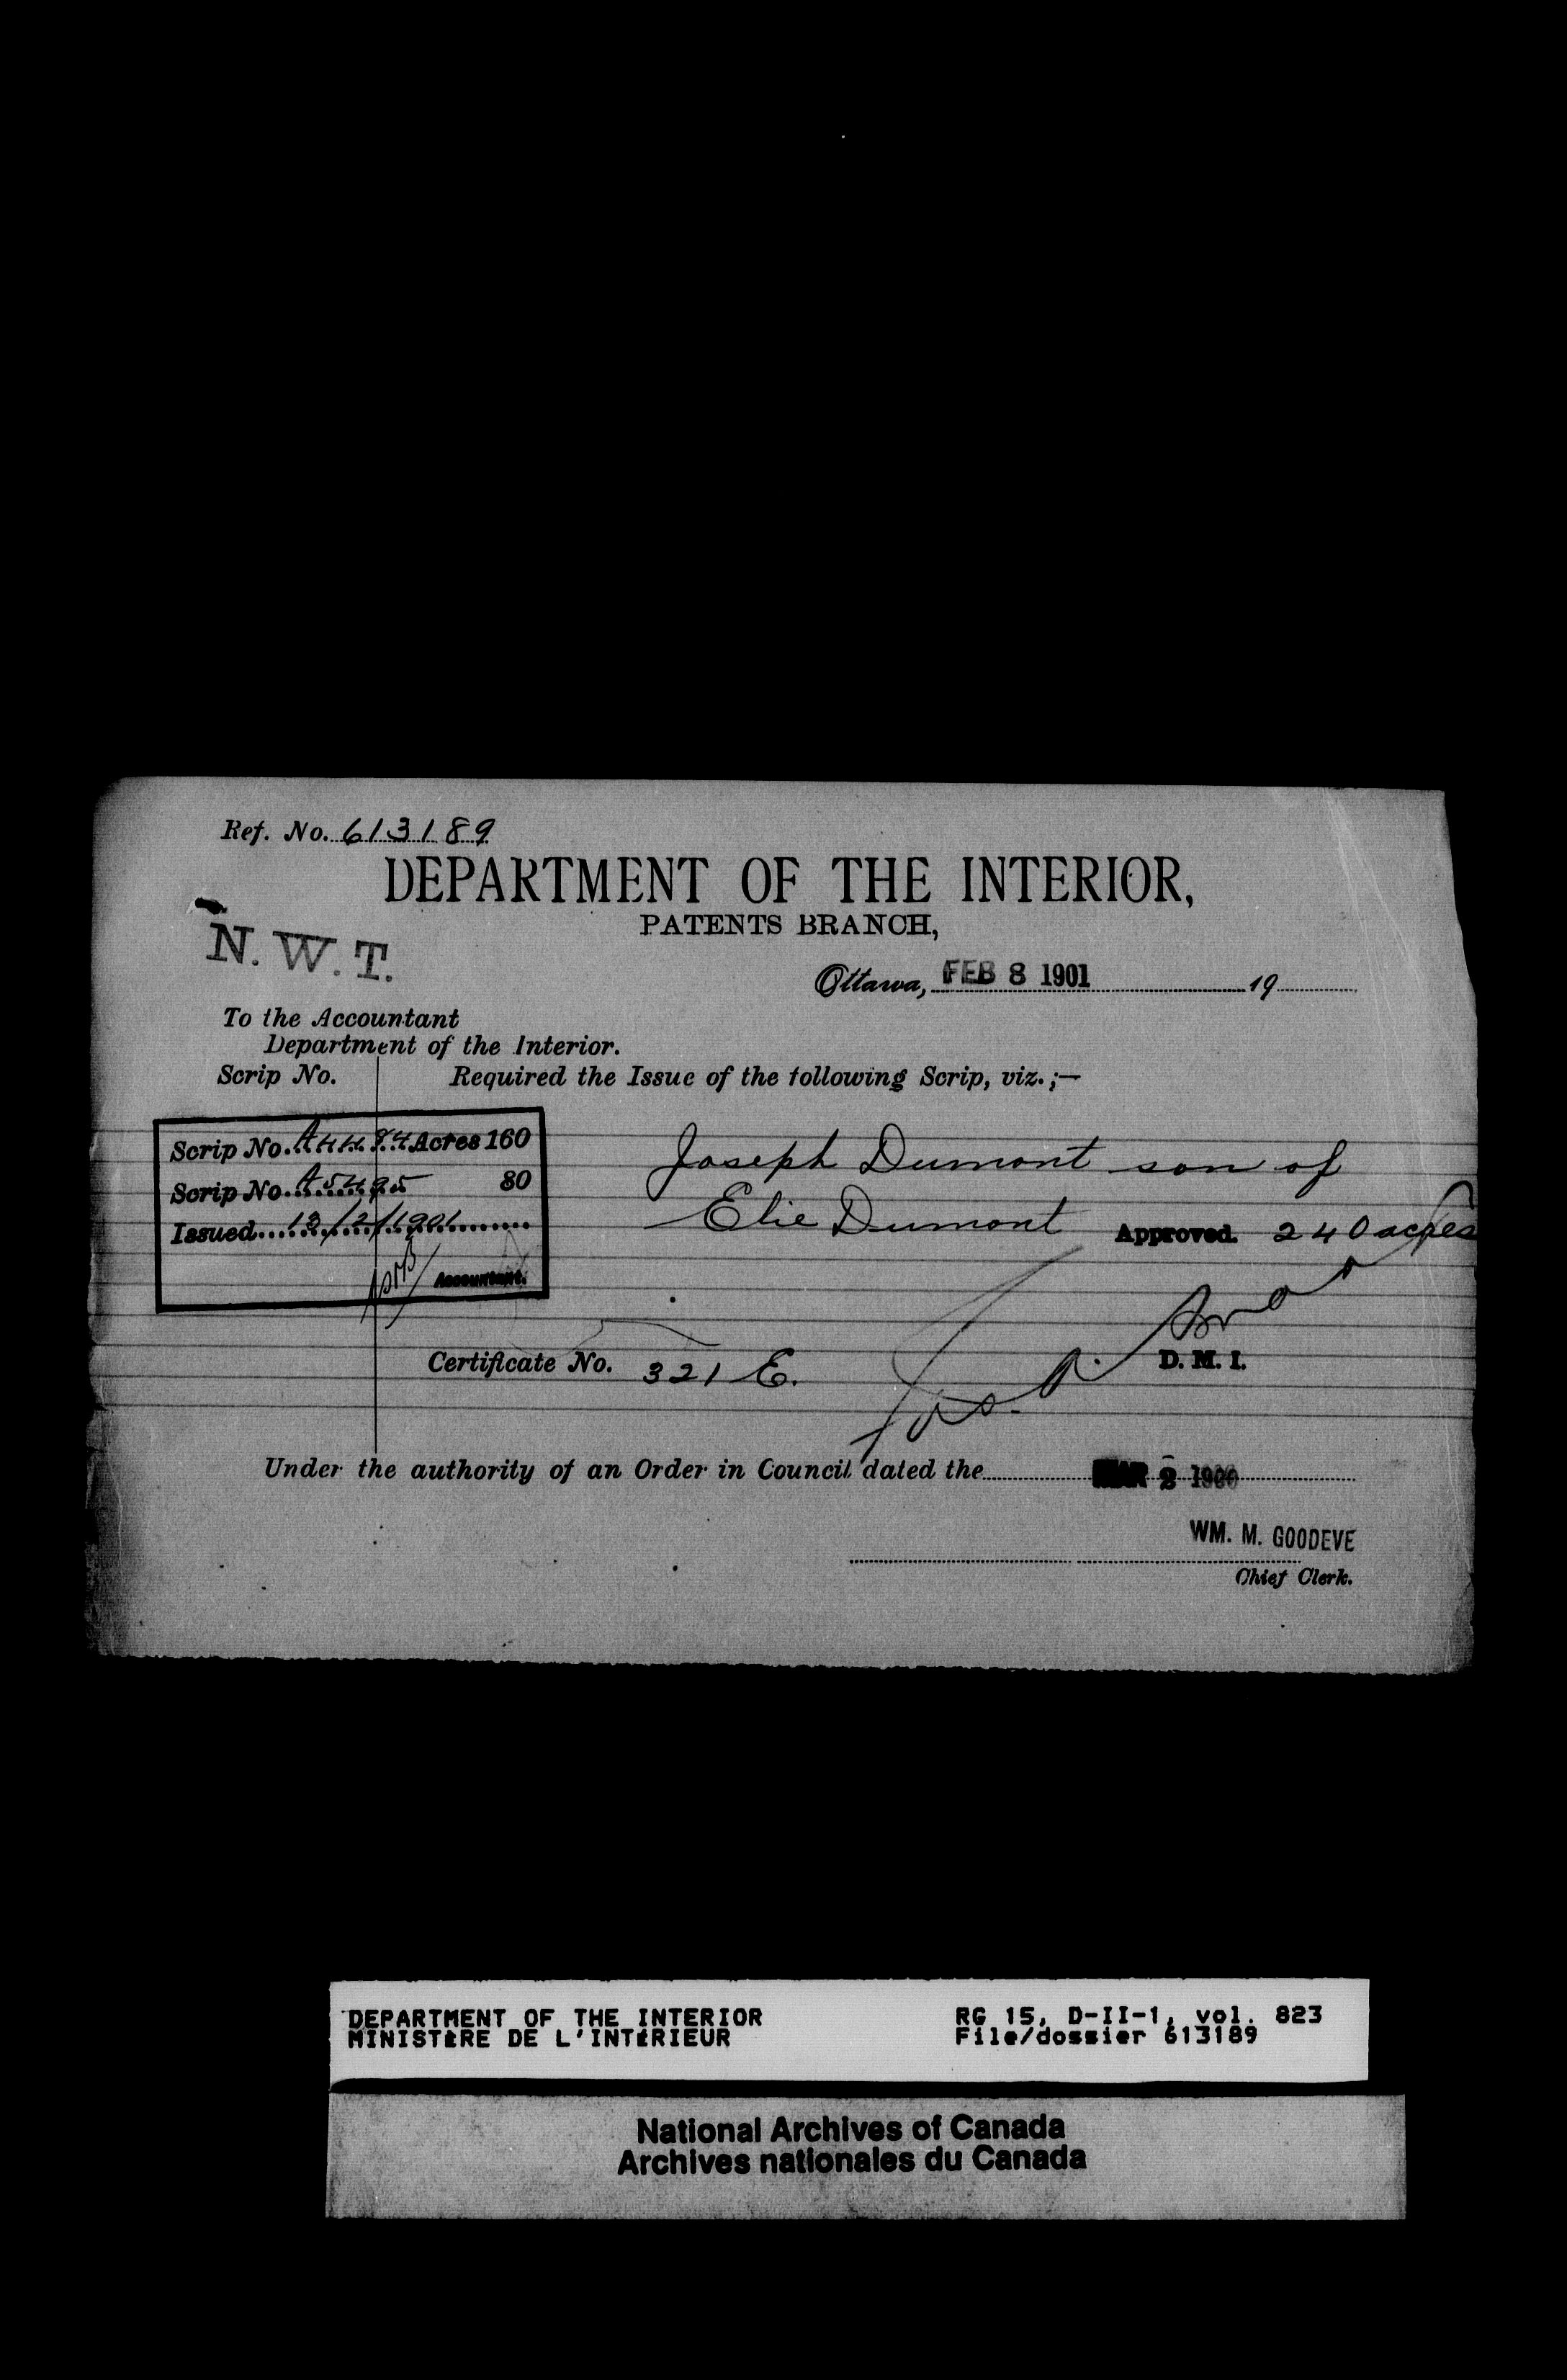 Ref. No. 613189
DEPARTMENT OF THE INTERIOR,
PATENTS BRANCH,
N. W. T.
Ottawa, FEB 8 1901 19
To the Accountant
Department of the Interior.
Scrip No. Required the Issue of the following Scrip, viz.;—
Scrip No. A4484 Acres 160
Scrip No. A5495 80
Issued 13/2/1901
Accountant.
Joseph Dumont son of
Elie Dumont Approved. 240 acres
D. M. I.
Certificate No. 321 E.
Under the authority of an Order in Council dated the MAR 2 1900
WM. M. GOODEVE
Chief Clerk.
DEPARTMENT OF THE INTERIOR RG 15, D-II-1, vol. 823
MINISTÈRE DE L'INTÉRIEUR File/dossier 613189
National Archives of Canada
Archives nationales du Canada